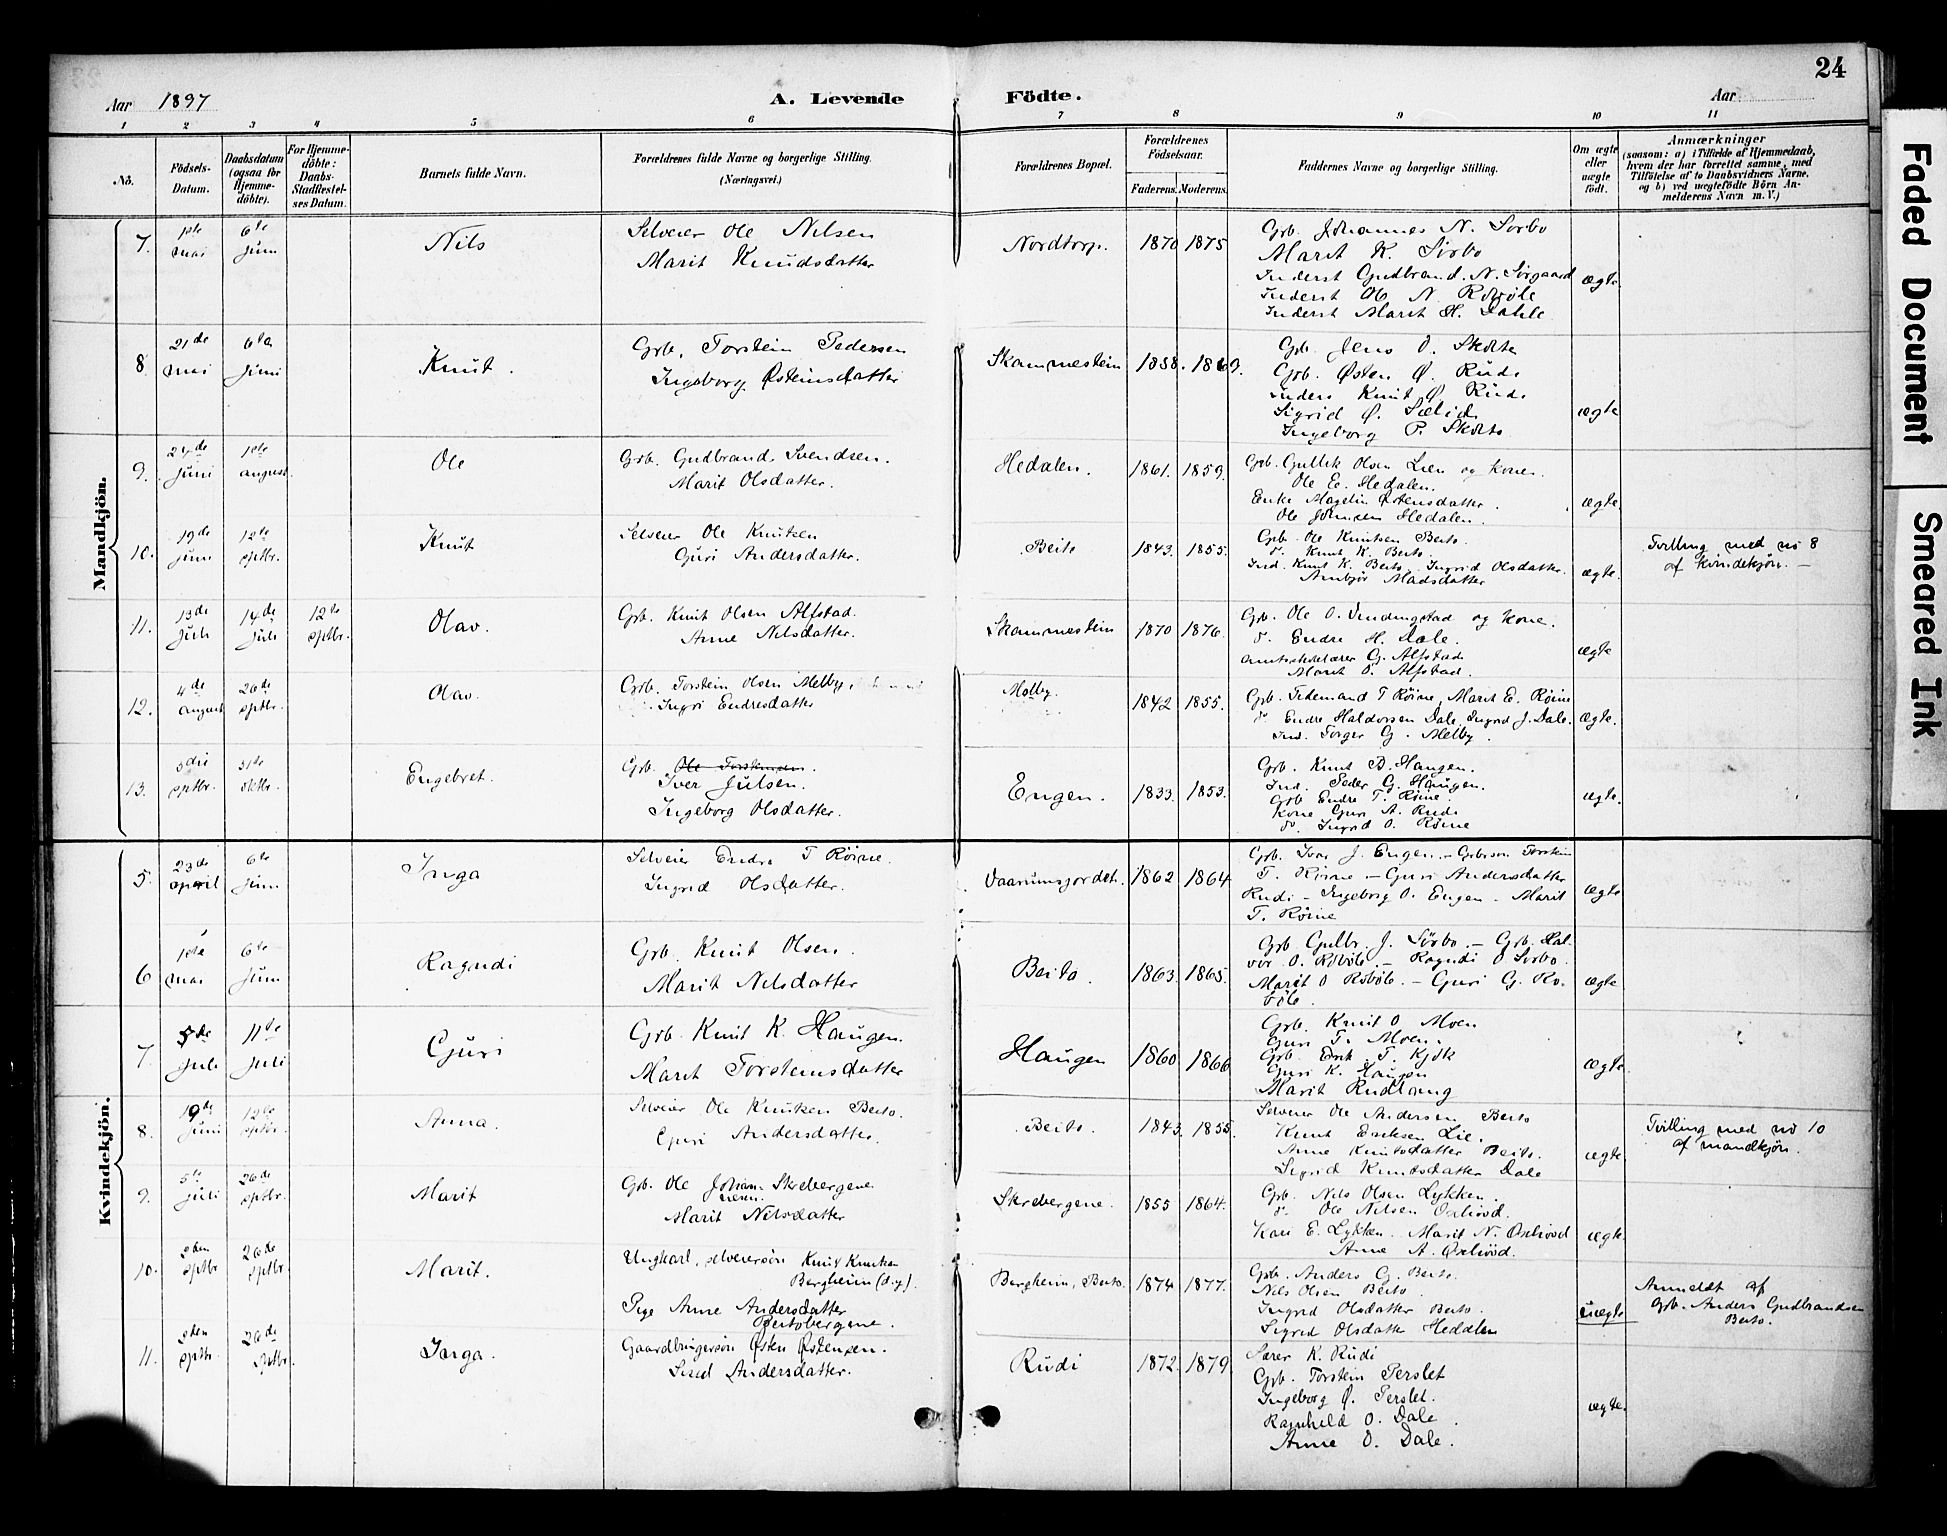 24
Aar 1897
A. Levende Födte.
Aar
1 2 3 4 5 6 7 8 9 10 11
No.
Födsels-Datum.
Daabsdatum (ogsaa for Hjemme-döbte).
For Hjemme-döbte: Daabs-Stadfæstel-ses Datum.
Barnets fulde Navn.
Forældrenes fulde Navne og borgerlige Stilling.
(Næringsvei.)
Forældrenes Bopæl.
Forældrenes Födselsaar.
Faderens. Moderens.
Faddernes Navne og borgerlige Stilling.
Om ægte eller uægte födt.
Anmærkninger
(saasom: a) i Tilfælde af Hjemmedaab, hvem der har forrettet samme, med Tilföielse af to Daabsvidners Navne, og b) ved uægtefödte Börn An-melderens Navn m. V.)
Mandkjön.
7. 1ste mai 6te juni Nils
Selveier Ole Nilsen
Marit Knudsdatter
Nordtorp. 1870 1875
Grb. Johannes N. Sorbo
Marit K. Sorbo
Inderst Gudbrand N. Sørgaard
Inderst Ole N. Robøle
Inderst Marit H. Dahle
ægte
8. 21de mai 6te juni Knut.
Grb. Torstein Pedersen
Ingeborg Østensdatter
Skammestein 1858. 1869.
Grb. Jens O. Skolte
Grb. Østen Ø. Rudi
Inders Knut Ø. Rudi
Sigrid Ø.
Ingeborg P.
ægte
9. 24de juni 1ste august Ole
Grb. Gudbrand Svendsen.
Marit Olsdatter.
Hedalen. 1861. 1859.
Grb. Gullik Olsen Lien og kone.
Ole E. Hedalen.
Enke Magelin Østensdatter.
Ole Johnsen Hedalen.
ægte.
10. 19de juni 12te sptbr. Knut
Selveier Ole Knutsen
Guri Andersdatter.
Beito 1843. 1855.
Grb. Ole Knutsen Beito.
do. Knut K. Beito.
Ind. Knut K. Beito. Ingrid Olsdatter.
Anbjør Madsdatter
ægte.
Tvilling med no 8
af kvindekjøn. –
11. 13de juli 14de juli 12te sptbr. Olav.
Grb. Knut Olsen Alfstad.
Anne Nilsdatter.
Skammestein 1870 1876.
Grb. Ole O. Vindingstad og kone.
do. Endre H. Dale.
Amtsskolelærer G. Alfstad
Marit O. Alfstad.
ægte
12. 4de august 26de sptbr. Olav.
Grb. Torstein Olsen Melby,
Ingri Endresdatter
Melby. 1842 1855.
Grb. Tidemand T Røine, Marit E. Røine
do Endre Haldorsen Dale, Ingrid J. Dale.
Ind. Torger G. Melby.
ægte.
13. 3die sptbr. 31te oktbr. Engebret.
Grb. Ole Torstensen.
Iver Julsen.
Ingeborg Olsdatter.
Engen. 1833. 1853.
Grb. Knut B. Haugen.
Ind. Peder G. Haugen.
Grb Endre T. Røine.
Kone Guri A. Rudi
do. Ingrid O. Røine
ægte.
Kvindekjön.
5. 23de april 6te juni Inga
Selveier Endre T Røine.
Ingrid Olsdatter.
Vaarumsjordet. 1862 1864
Grb. Ivar J. Engen. – Grbsøn Torstein
T. Røine – Guri Andersdatter
Rudi – Ingeborg O. Engen – Marit
T. Røine
ægte
6 1ste mai 6te juni Ragndi
Grb. Knut Olsen.
Marit Nilsdatter
Beito. 1863. 1865.
Grb. Gulbr. J. Sørbo. – Grb. Hal-
vor O. Robøle. – Ragndi O Sorbo.
Marit O Robøle. – Guri G. Ro-
bøle.
ægte
7. 5te juli 11te juli Guri
Grb. Knut K. Haugen.
Marit Torsteinsdatter
Haugen 1860 1866
Grb. Knut O. Moen
Guri T. Moen.
Grb. Erik T. Kjøk
Guri K. Haugen
Marit Rudtang
ægte
8. 19de juni 12te sptbr. Anna.
Selveier Ole Knutsen Beito.
Guri Andersdatter.
Beito. 1843. 1855.
Selveier Ole Andersen Beito
Knut Eriksen Lie.
Anne Knutsdatter Beito.
Sigrid Knutsdatter Dale
ægte
Tvilling med no 10
af mandkjøn.
9. 5te juli 26de sptbr. Marit
Grb. Ole Johan- Skrebergene
nesen.
Marit Nilsdatter
Skrebergene. 1855 1864.
Grb. Nils Olsen Lykken.
do. Ole Nilsen Oxhovd.
Kari E. Lykken. Marit N. Oxhovd
Anne A. Oxhovd.
ægte
10. 2den sptbr 26de sptbr Marit.
Ungkarl, selveiersøn Knut Knutsen
Bergheim (d.y.).
Pige Anne Andersdatter
Beitobergene.
Bergheim, Beito. 1874 1877.
Grb. Anders G. Beito.
Nils Olsen Beito.
Ingrid Olsdatter Beito.
Sigrid Olsdatter Heddlen
uægte
Anmeldt af
Grb. Anders Gudbrandsen
Beito.
11. 2den sptbr. 26de sptbr. Inga.
Gaardbrugersøn Østen Østensen.
Sised Andersdatter.
Rudi 1872. 1879.
K. Rudi
Grb. Torstein Perslet
Ingeborg Ø. Perslet.
Ragnhild O. Dale.
Anne O. Dale.
ægte.
Faded Document
Smeared Ink